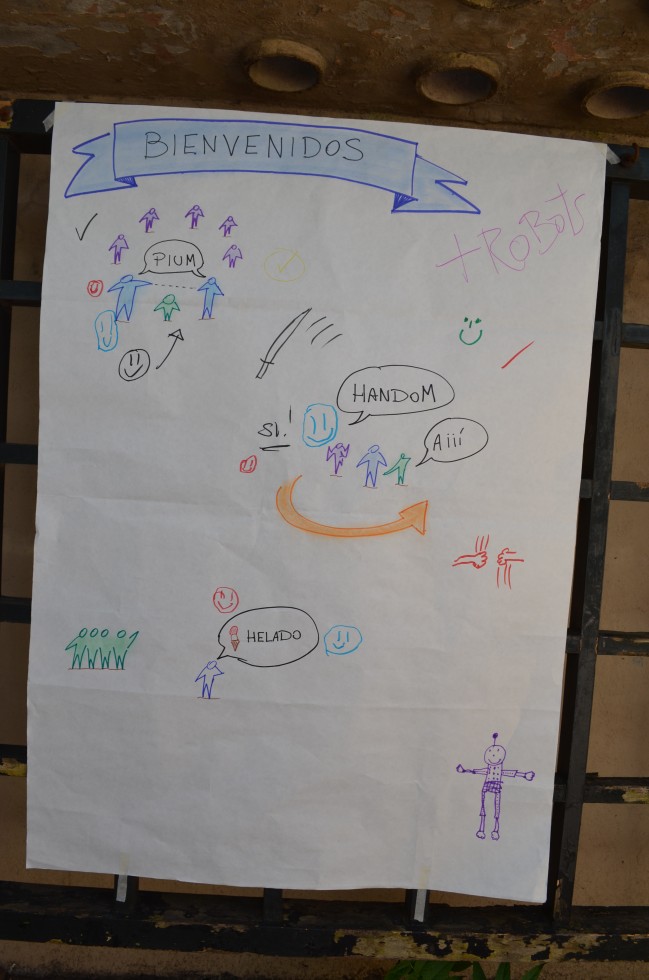 BIENVENIDOS
+ROBots
PIUM
HANDOM
SI!
Aiií
HELADO